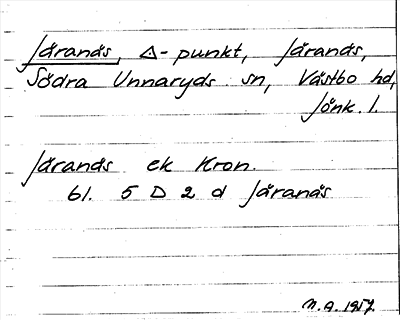 Järanäs, Δ-punkt, Järanäs,
Södra Unnaryds sn, Västbo hd,
Jönk. l.
Järanäs ek Kron.
bl. 5 D 2 d Järanäs
N.A. 1957.